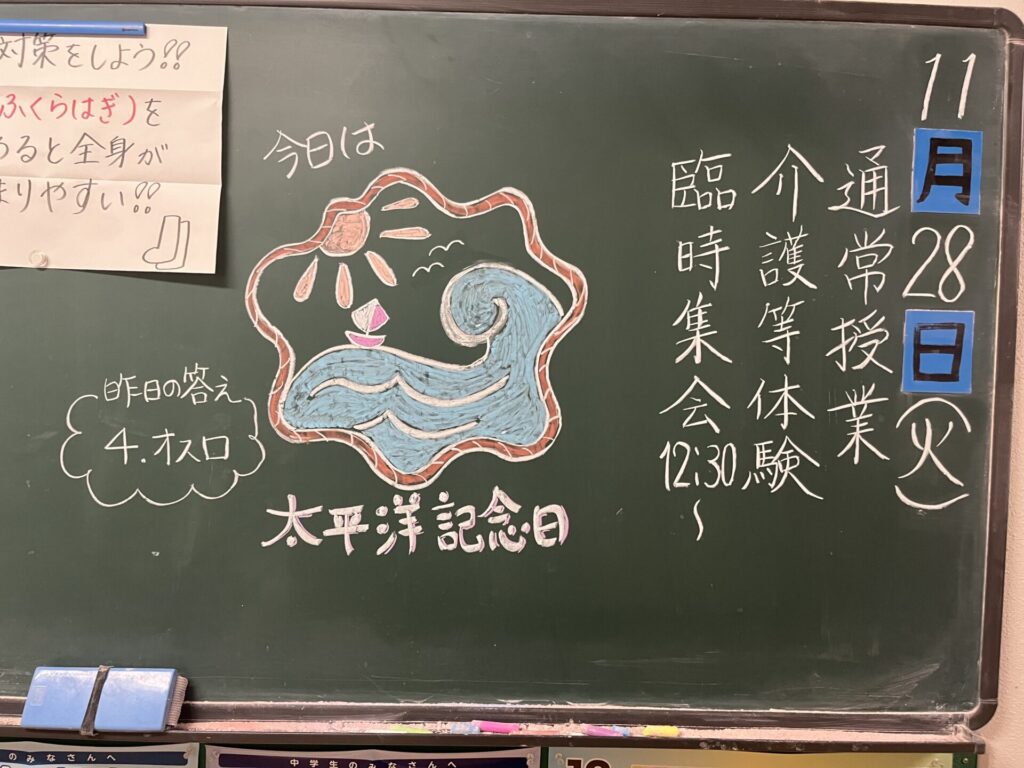 11月28日(火)
通常授業
介護等体験
臨時集会12:30～
今日は
太平洋記念日
昨日の答え
4.オスロ
対策をしよう!!
ふくらはぎ)を
ると全身が
まりやすい!!
のみなさんへ
中学生のみなさんへ
10